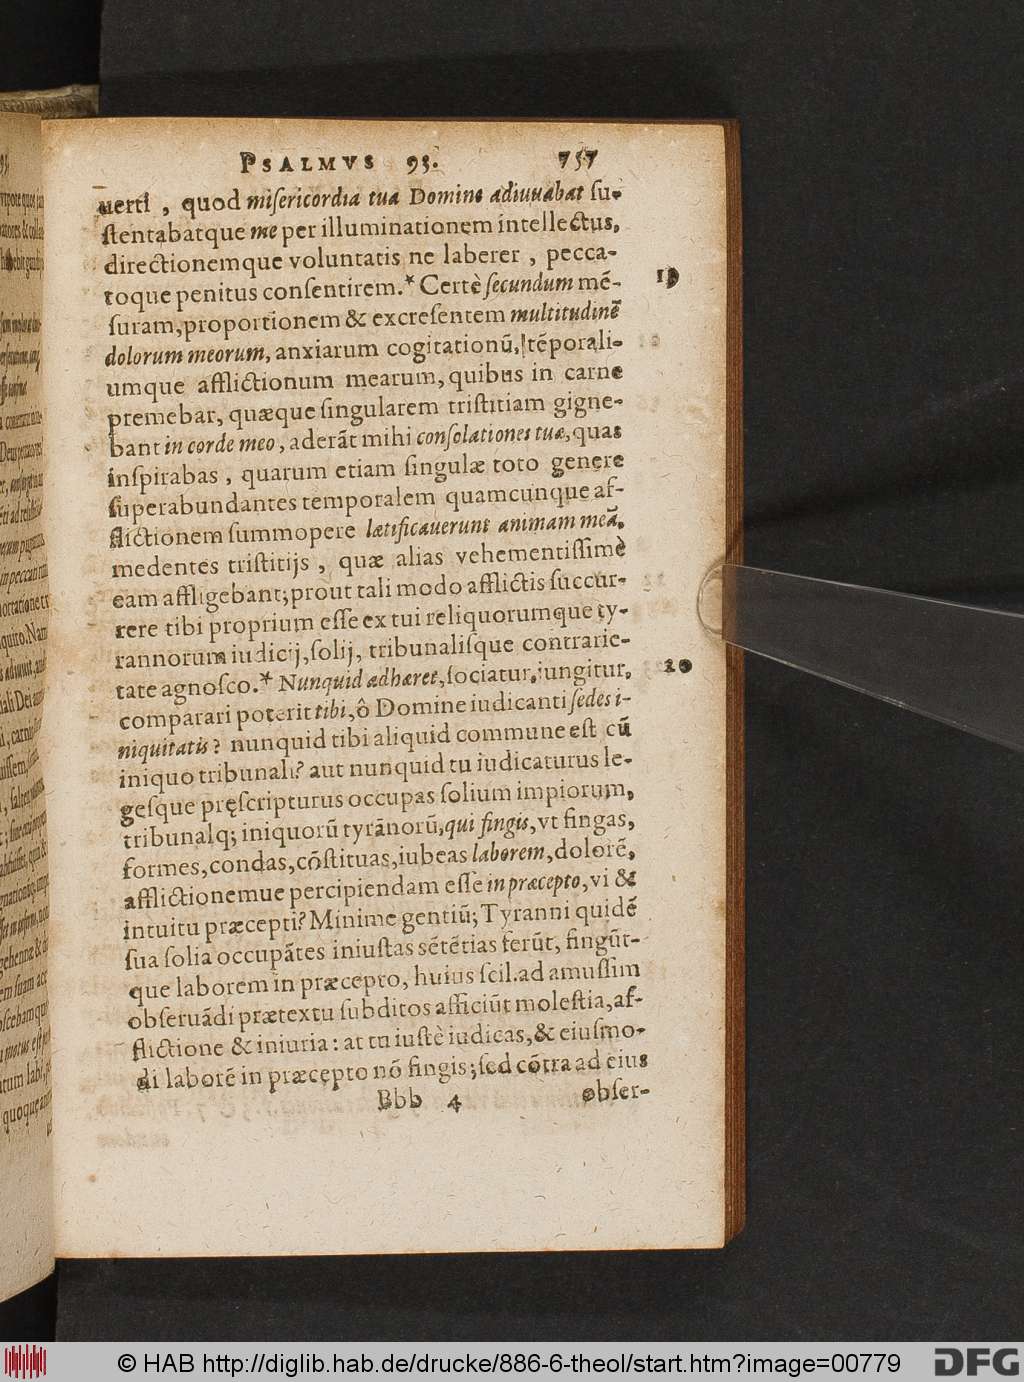 PSALMVS 93. 757
uerti, quod misericordia tua Domine adiuuabat su-
stentabatque me per illuminationem intellectus,
directionemque voluntatis ne laberer, pecca-
toque penitus consentirem.* Certè secundum mē- 19
suram, proportionem & excresentem multitudinē
dolorum meorum, anxiarum cogitationū, tēporali-
umque afflictionum mearum, quibus in carne
premebar, quæque singularem tristitiam gigne-
bant in corde meo, aderāt mihi consolationes tuæ, quas
inspirabas, quarum etiam singulæ toto genere
superabundantes temporalem quamcunque af-
flictionem summopere lætificauerunt animam meā,
medentes tristitijs, quæ alias vehementissimè
eam affligebant; prout tali modo afflictis succur-
rere tibi proprium esse ex tui reliquorumque ty-
rannorum iudicij, solij, tribunalisque contrarie-
tate agnosco.* Nunquid adhæret, sociatur, iungitur, 20
comparari poterit tibi, ô Domine iudicanti sedes i-
niquitatis? nunquid tibi aliquid commune est cū
iniquo tribunali? aut nunquid tu iudicaturus le-
gesque pręscripturus occupas solium impiorum,
tribunalq; iniquorū tyrānorū, qui fingis, vt fingas,
formes, condas, cōstituas, iubeas laborem, dolorē,
afflictionemue percipiendam esse in præcepto, vi &
intuitu præcepti? Minime gentiū; Tyranni quidē
sua solia occupātes iniustas sētētias ferūt, fingūt-
que laborem in præcepto, huius scil. ad amussim
obseruādi prætextu subditos afficiūt molestia, af-
flictione & iniuria: at tu iustè iudicas, & eiusmo-
di laborē in præcepto nō fingis; sed cōtra ad eius
Bbb 4 obser-
© HAB http://diglib.hab.de/drucke/886-6-theol/start.htm?image=00779
DFG